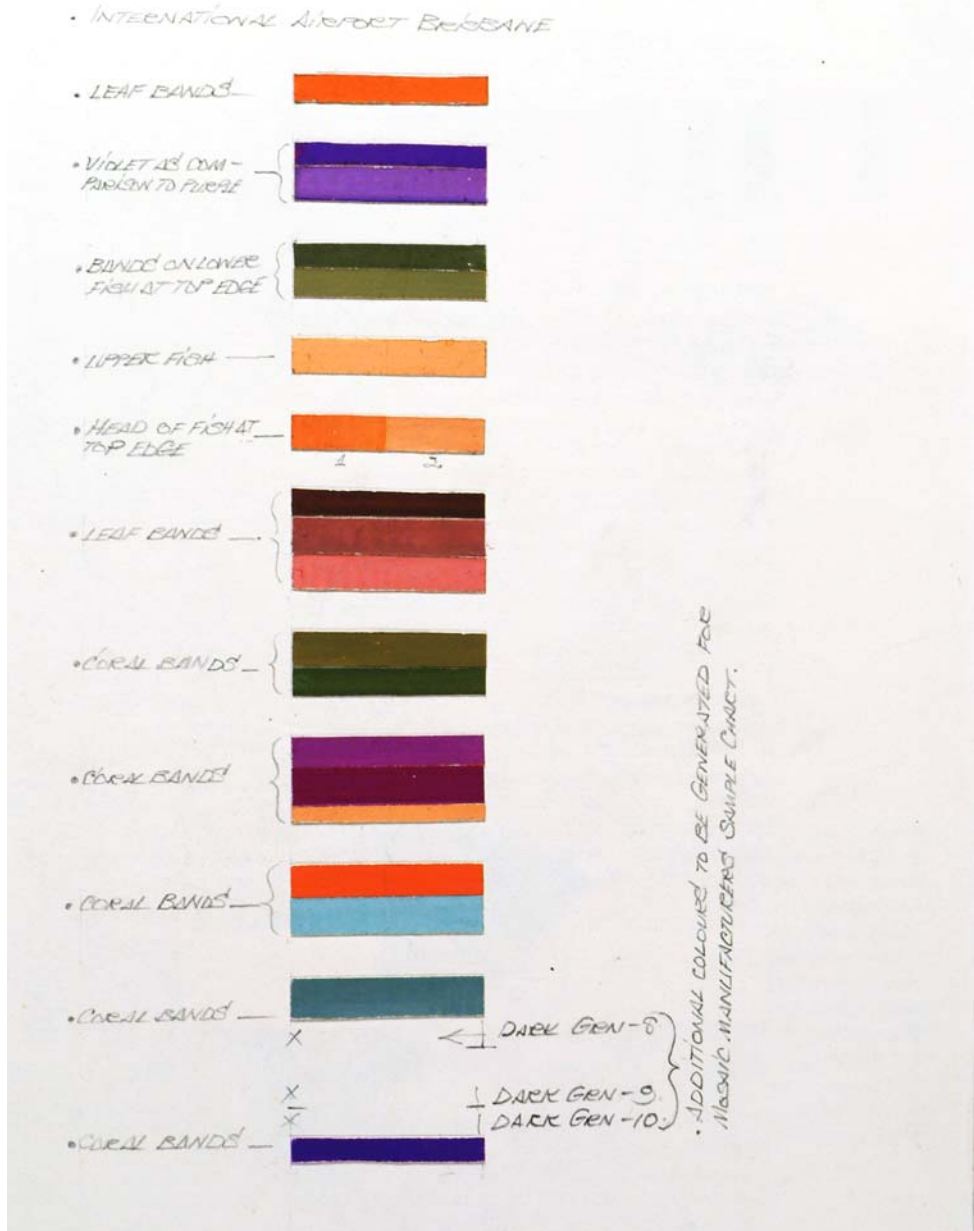 • INTERNATIONAL AIRPORT BRISBANE
• LEAF BANDS
• VIOLET AS COM-
PARISON TO PURPLE
• BANDS ON LOWER
FISH AT TOP EDGE
• UPPER FISH
• HEAD OF FISH AT
TOP EDGE
1 2
• LEAF BANDS
• CORAL BANDS
• CORAL BANDS
• CORAL BANDS
• CORAL BANDS
X
DARK GRN-8
X
X
DARK GRN-9
DARK GRN-10
• CORAL BANDS
• ADDITIONAL COLOURS TO BE GENERATED FOR
MOSAIC MANUFACTURERS SAMPLE CHART.